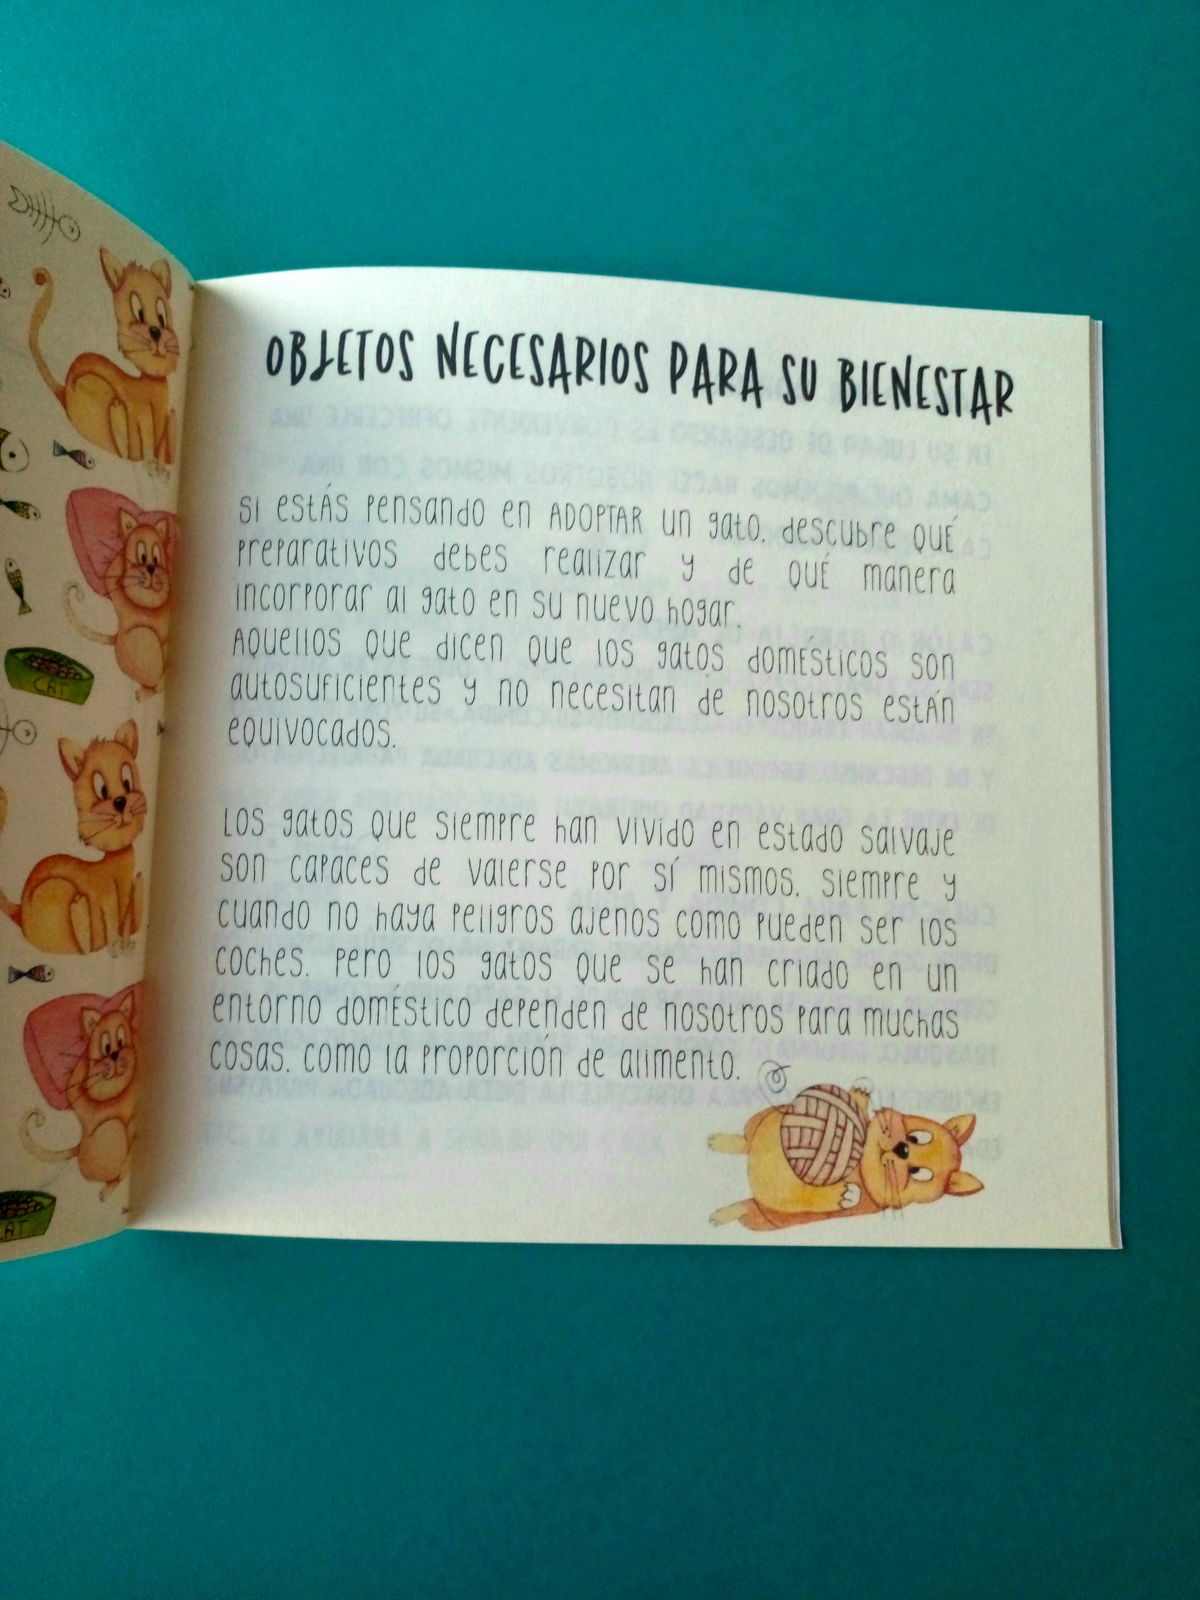 OBJETOS NECESARIOS PARA SU BIENESTAR
SI ESTÁS PENSANDO EN ADOPTAR UN GATO, DESCUBRE QUÉ
PREPARATIVOS DEBES REALIZAR Y DE QUÉ MANERA
INCORPORAR AL GATO EN SU NUEVO HOGAR.
AQUELLOS QUE DICEN QUE LOS GATOS DOMÉSTICOS SON
AUTOSUFICIENTES Y NO NECESITAN DE NOSOTROS ESTÁN
EQUIVOCADOS.
LOS GATOS QUE SIEMPRE HAN VIVIDO EN ESTADO SALVAJE
SON CAPACES DE VALERSE POR SÍ MISMOS, SIEMPRE Y
CUANDO NO HAYA PELIGROS AJENOS COMO PUEDEN SER LOS
COCHES. PERO LOS GATOS QUE SE HAN CRIADO EN UN
ENTORNO DOMÉSTICO DEPENDEN DE NOSOTROS PARA MUCHAS
COSAS, COMO LA PROPORCIÓN DE ALIMENTO.
CAT
CAT